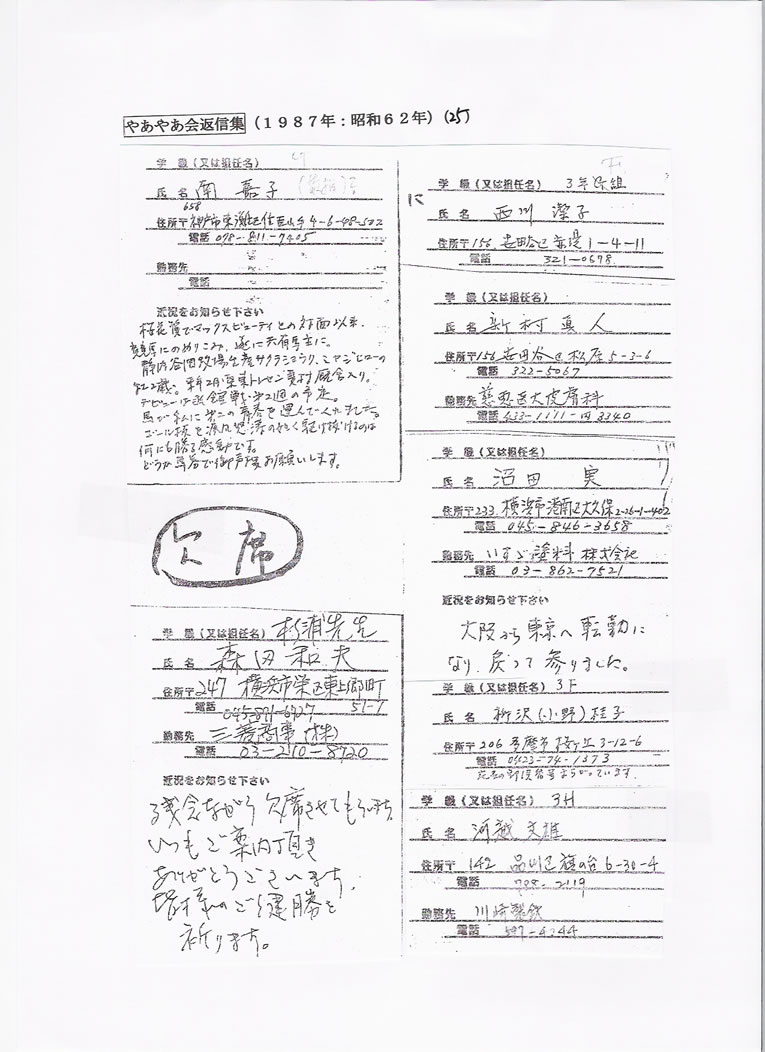 やあやあ会返信集(1987年:昭和62年)(25)
学級(又は担任名)
氏名 南 嘉子
658
住所〒神戸市東灘区住吉山手4-6-48-502
電話 078-811-7405
勤務先
電話
近況をお知らせ下さい
桜花賞でマックスビューティとの対面以来、
競馬にのめりこみ、遂に共有馬主に。
静内谷岡牧場生産サクラショウリ、
牡2歳。栗東トレセン 厩舎入り。
デビューは の予定。
馬が私に第二の青春を運んでくれました。
ゴール板を 駆け抜けるのは
何にも勝る感動です。
どうか 御声援お願いします。
欠席
学級(又は担任名) 杉浦先生
氏名 森田和夫
住所〒247 横浜市栄区東上郷町
51-1
電話 045-891-6927
勤務先 三菱商事(株)
電話 03-210-8720
近況をお知らせ下さい
残念ながら欠席させてもらいます。
いつもご案内頂き
ありがとうございます。
皆様のご健勝を
祈ります。
に
学級(又は担任名) 3年 組
氏名 西川 潔子
住所〒156 世田谷区赤堤1-4-11
電話 321-0678
学級(又は担任名)
氏名 新村真人
住所〒156 世田谷区松原5-3-6
電話 322-5067
勤務先 慈恵医大皮膚科
電話 433-1111-内3340
学級(又は担任名)
氏名 沼田 実
住所〒233 横浜市港南区大久保2-26-1-402
電話 045-846-3658
勤務先 いすゞ塗料株式会社
電話 03-862-7521
近況をお知らせ下さい
大阪から東京へ転勤に
なり、戻って参りました。
学級(又は担任名) 3F
氏名 柳沢(小野)桂子
住所〒206 多摩市桜ヶ丘3-12-6
電話 0423-74-1373
学級(又は担任名) 3H
氏名 河越文雄
住所〒142 品川区旗の台6-30-4
電話 788-2119
勤務先 川崎製鉄
電話 597-4344